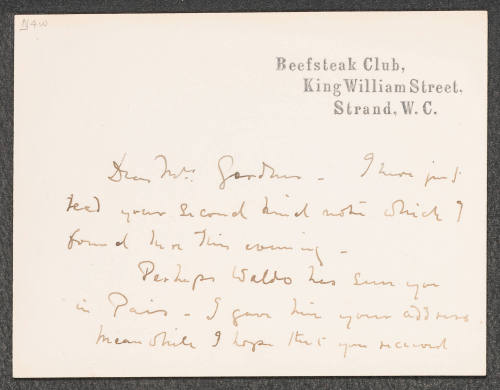 N4w
Beefsteak Club,
King William Street.
Strand, W. C.
Dear Mrs. Gardner - I have just
read your second kind note which I
found here this evening -
Perhaps Waldo has seen you
in Paris - I gave him your address.
Meanwhile I hope that you received